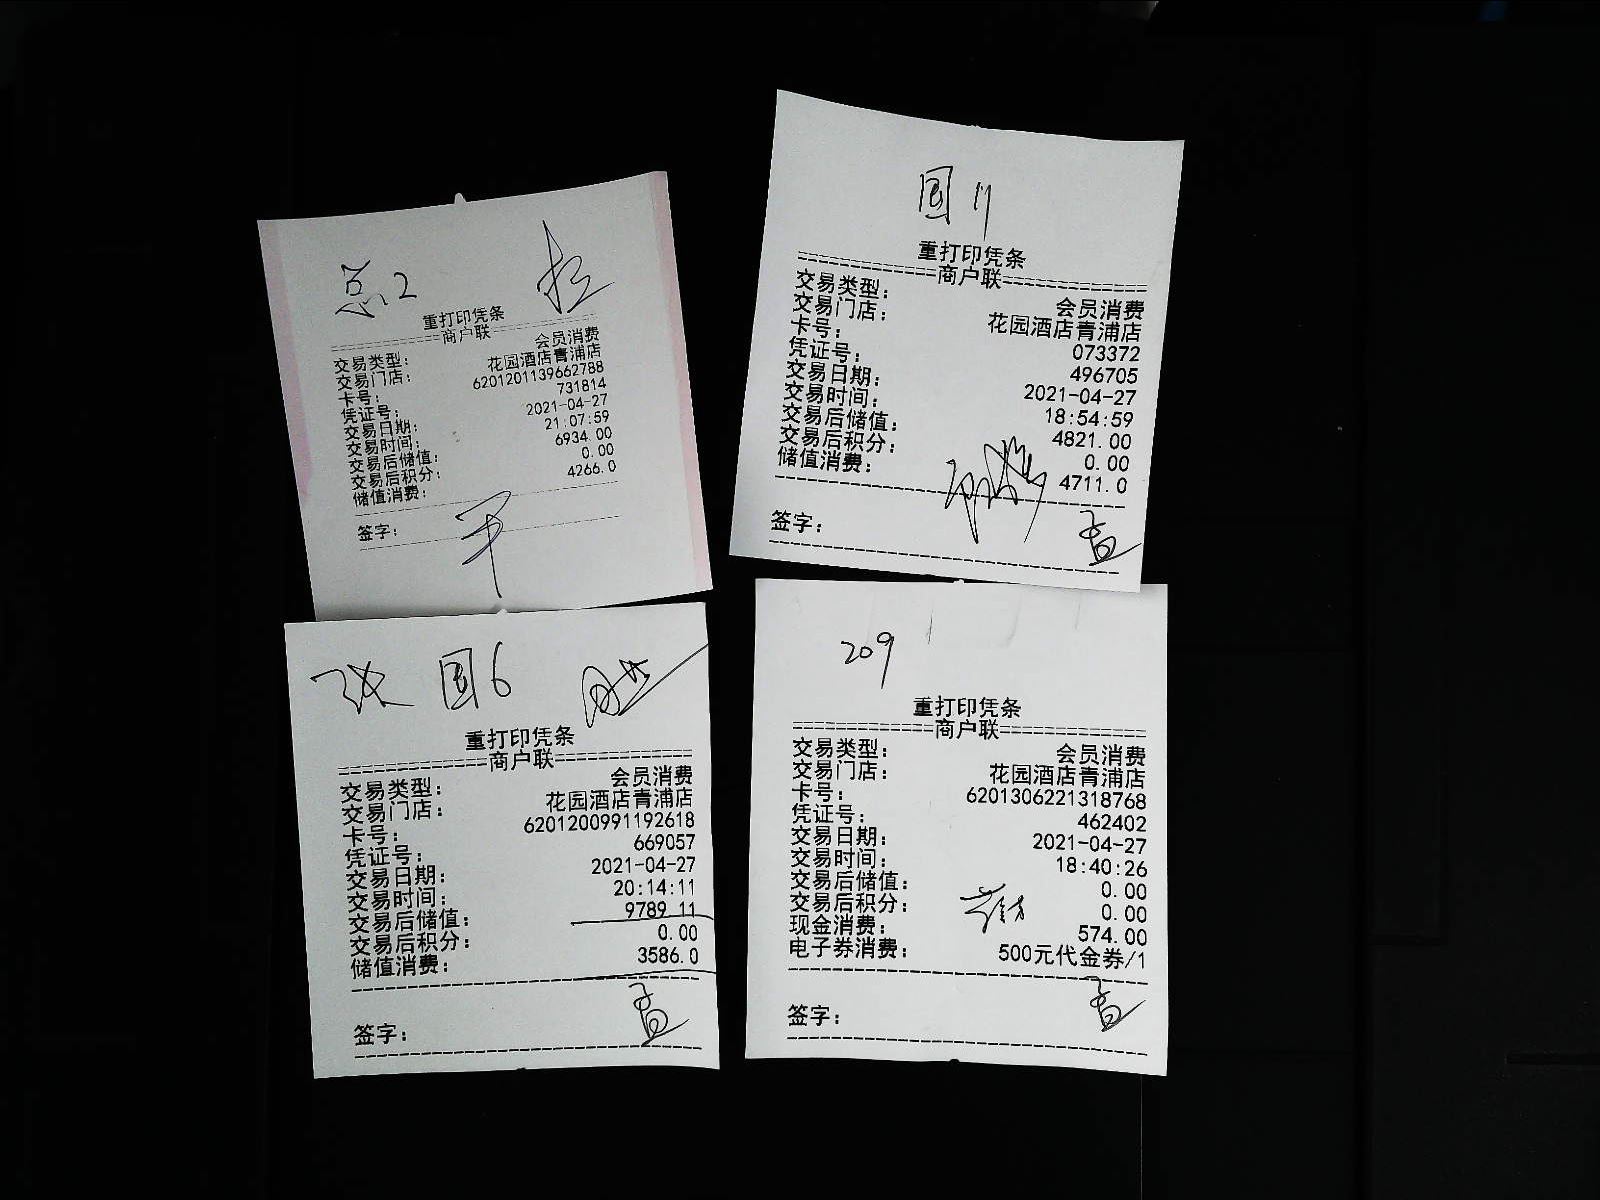 总2
重打印凭条
商户联
交易类型： 会员消费
交易门店： 花园酒店青浦店
卡号： 6201201139662788
凭证号： 731814
交易日期： 2021-04-27
交易时间： 21:07:59
交易后储值： 6934.00
交易后积分： 0.00
储值消费： 4266.0
签字：
11
重打印凭条
==============商户联==============
交易类型： 会员消费
交易门店： 花园酒店青浦店
卡号： 073372
凭证号： 496705
交易日期： 2021-04-27
交易时间： 18:54:59
交易后储值： 4821.00
交易后积分： 0.00
储值消费： 4711.0
签字：
张 6
重打印凭条
==============商户联==============
交易类型： 会员消费
交易门店： 花园酒店青浦店
卡号： 6201200991192618
凭证号： 669057
交易日期： 2021-04-27
交易时间： 20:14:11
交易后储值： 9789.11
交易后积分： 0.00
储值消费： 3586.0
签字：
209
重打印凭条
==============商户联==============
交易类型： 会员消费
交易门店： 花园酒店青浦店
卡号： 6201306221318768
凭证号： 462402
交易日期： 2021-04-27
交易时间： 18:40:26
交易后储值： 0.00
交易后积分： 0.00
现金消费： 574.00
电子券消费： 500元代金券/1
签字：